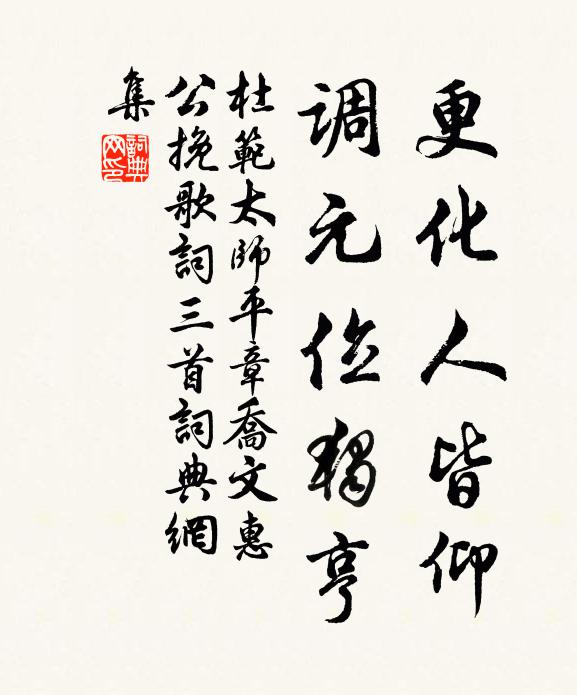 更化人皆仰
调元位獨亨
杜範太師平章喬文惠
公挽歌詞三首詞典網
集
詞典網印